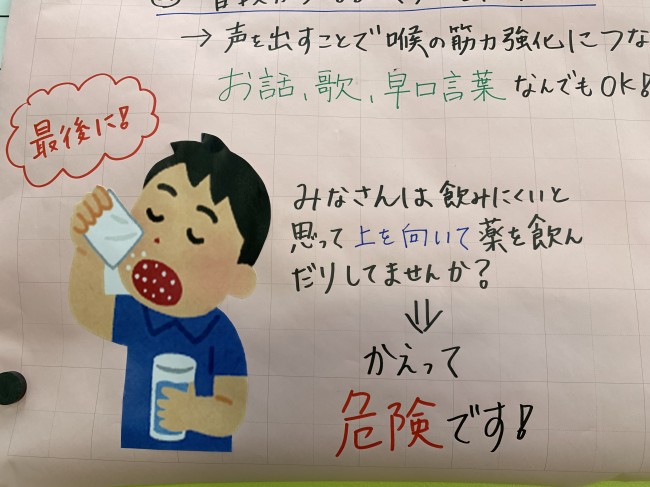 → 声を出すことで喉の筋力強化につな
お話、歌、早口言葉 なんでもOK!
最後に!
みなさんは飲みにくいと
思って上を向いて薬を飲ん
だりしてませんか?
⇓
かえって
危険です!